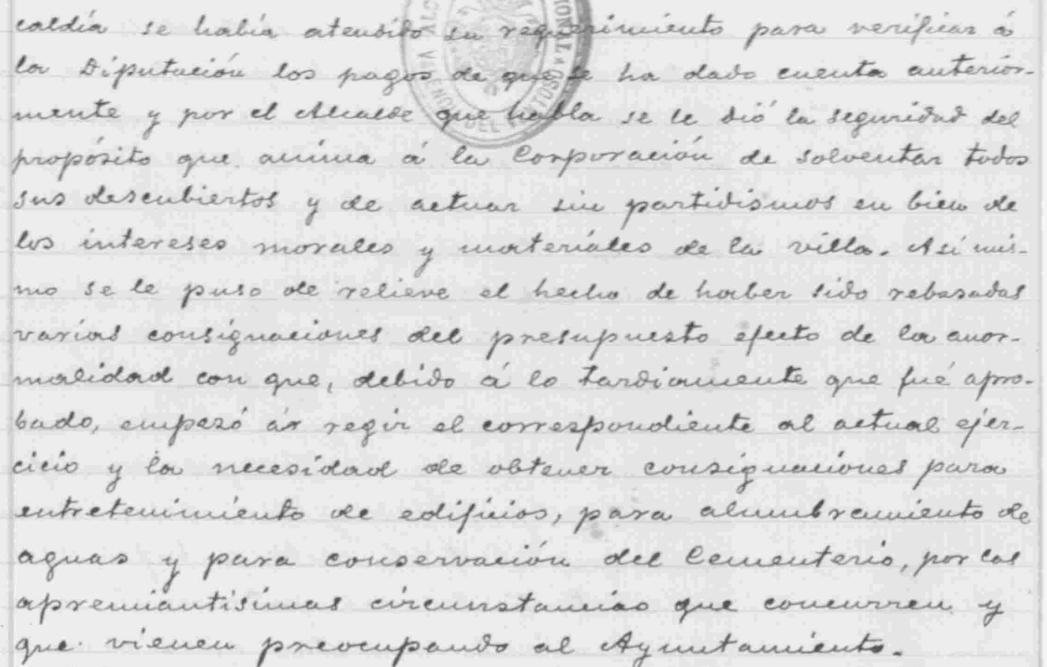 caldía se había atendido su requerimiento para verificar á
la Diputación los pagos de que se ha dado cuenta anterior-
mente y por el Alcalde que habla se le dió la seguridad del
propósito que anima á la Corporación de solventar todos
sus descubiertos y de actuar sin partidismos en bien de
los intereses morales y materiales de la villa. Asimis-
mo se le puso de relieve el hecho de haber sido rebasadas
varias consignaciones del presupuesto efecto de la anor-
malidad con que, debido á lo tardiamente que fué apro-
bado, empezó á regir el correspondiente al actual ejer-
cicio y la necesidad de obtener consignaciones para
entretenimiento de edificios, para alumbramiento de
aguas y para conservación del Cementerio, por las
apremiantísimas circunstancias que concurren y
que vienen preocupando al Ayuntamiento.